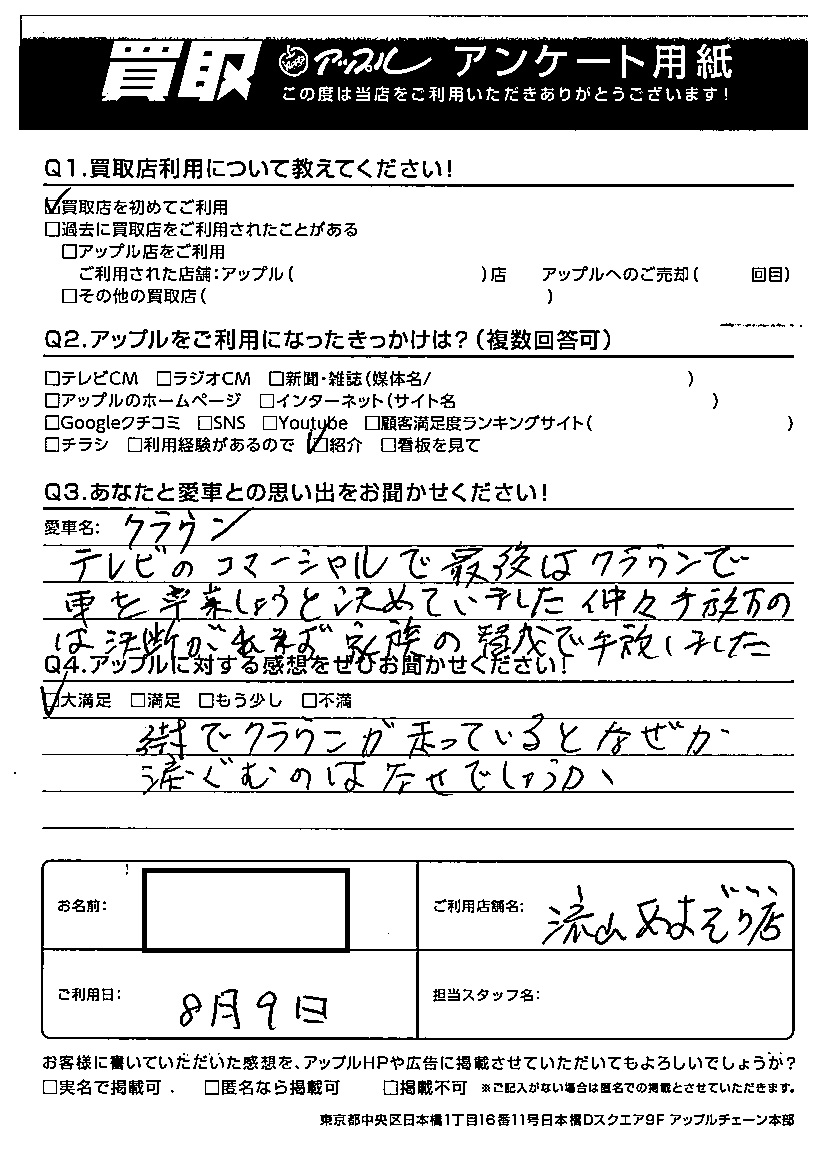 買取 アップル アンケート用紙
この度は当店をご利用いただきありがとうございます!
Q1.買取店利用について教えてください!
☑買取店を初めてご利用
□過去に買取店をご利用されたことがある
□アップル店をご利用
ご利用された店舗:アップル( )店 アップルへのご売却( 回目)
□その他の買取店( )
Q2.アップルをご利用になったきっかけは?(複数回答可)
□テレビCM □ラジオCM □新聞・雑誌(媒体名/ )
□アップルのホームページ □インターネット(サイト名 )
□Googleクチコミ □SNS □Youtube □顧客満足度ランキングサイト( )
□チラシ □利用経験があるので ☑紹介 □看板を見て
Q3.あなたと愛車との思い出をお聞かせください!
愛車名: クラウン
テレビのコマーシャルで最後はクラウンで
車を卒業しようと決めていました仲々手放すの
は決断がいれますが家族の賛成で手放しました
Q4.アップルに対する感想をぜひお聞かせください!
☑大満足 □満足 □もう少し □不満
街でクラウンが走っているとなぜか
涙ぐむのはなぜでしょうか、
お名前:
ご利用店舗名: 流山おおぞり店
ご利用日: 8月9日
担当スタッフ名:
お客様に書いていただいた感想を、アップルHPや広告に掲載させていただいてもよろしいでしょうか?
□実名で掲載可 . □匿名なら掲載可 □掲載不可 ※ご記入がない場合は匿名での掲載とさせていただきます。
東京都中央区日本橋1丁目16番11号日本橋Dスクエア9F アップルチェーン本部